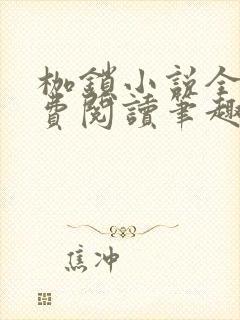 枷鎖小説全
費閱讀筆趣
焦冲